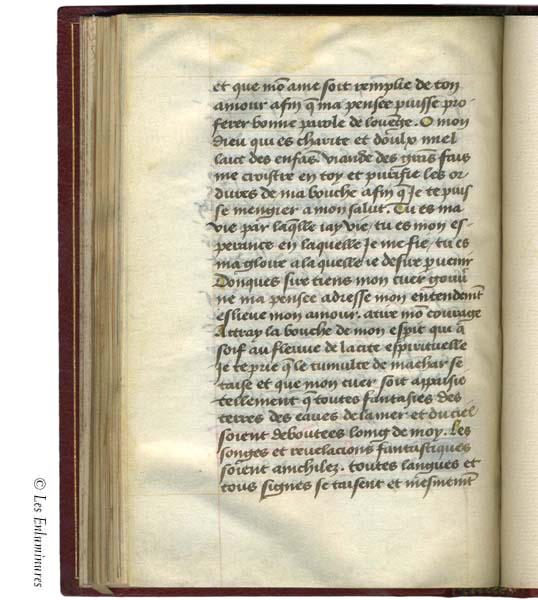 et que mõ ame soit remplie de ton
amour afin q̃ ma pensee puisse pro-
ferer bonne parole de lovẽge. O mon
dieu qui es charite et doulx miel
laict des enfãs. viande des grãs fais
me croistre en toy et purifie les or
dures de ma bouche afin q̃ Je te puis
se mengier a mon salut. Tu es ma
vie par laq̃lle iay vie, tu es mon es-
perance en laquelle Je me fie, tu es
ma gloire a laquelle ie desire pvenir
Donques sire tiens mon cuer gouṽ
ne ma pensee adresse mon entendemẽt
eslieve mon amour. atire mõ courage
Attray la bouche de mon esp̃it qui a
soif au fleuve de la cite espirituelle
Je te prie q̃ le tumulte de ma char se
taise et que mon cuer soit appaisie
tellement q̃ toutes fantasies des
terres des eaves de la mer et du ciel
soient deboutees loing de moy. Les
songes et revelacions fantastiques
soient anichilez. toutes langues et
tous signes se taisent et mesmemẽt
© Les Enluminures